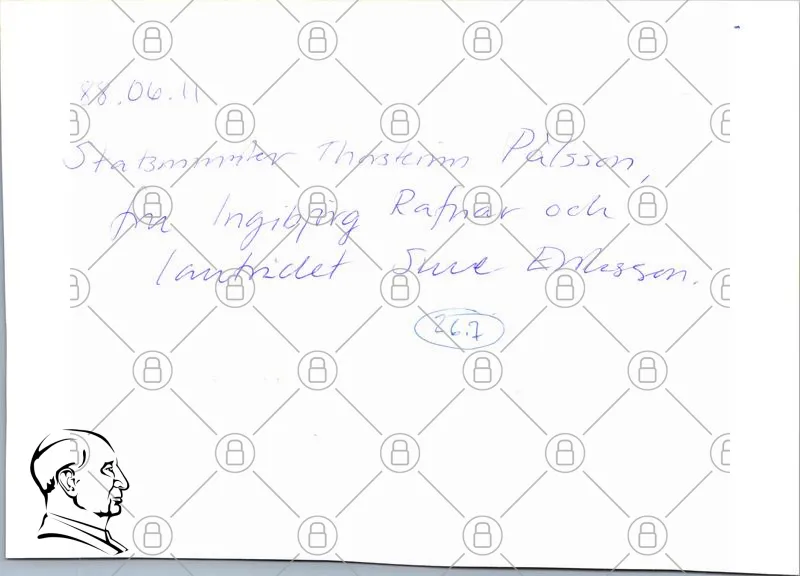 88.06.11
Statsminister Thorsteinn Pálsson,
fru Ingibjörg Rafnar och
lantrådet Sune Eriksson.
26.7